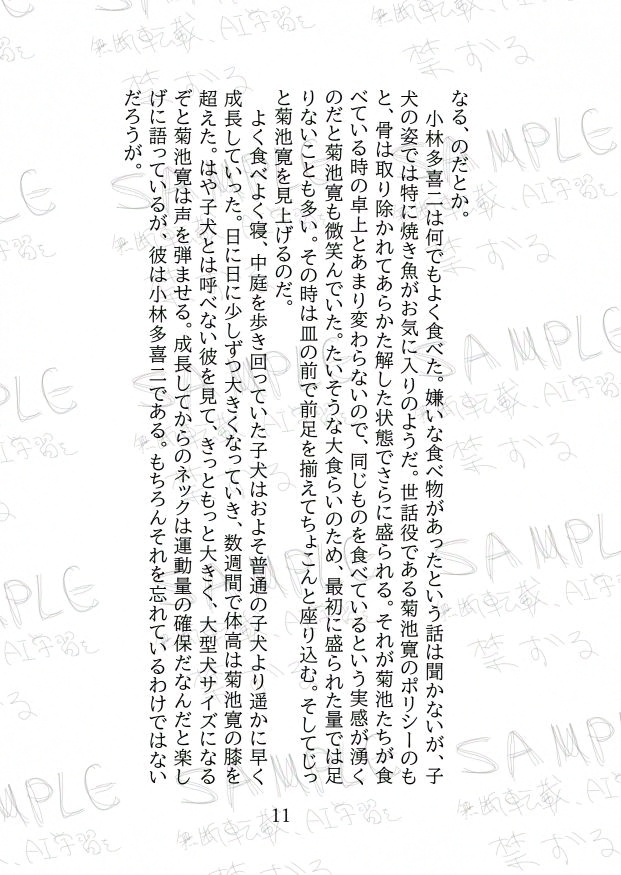 なる、のだとか。
　小林多喜二は何でもよく食べた。嫌いな食べ物があったという話は聞かないが、子
犬の姿では特に焼き魚がお気に入りのようだ。世話役である菊池寛のポリシーのも
と、骨は取り除かれてあらかた解した状態でさらに盛られる。それが菊池たちが食
べている時の卓上とあまり変わらないので、同じものを食べているという実感が湧く
のだと菊池寛も微笑んでいた。たいそうな大食らいのため、最初に盛られた量では足
りないことも多い。その時は皿の前で前足を揃えてちょこんと座り込む。そしてじっ
と菊池寛を見上げるのだ。
　よく食べよく寝、中庭を歩き回っていた子犬はおよそ普通の子犬より遥かに早く
成長していった。日に日に少しずつ大きくなっていき、数週間で体高は菊池寛の膝を
超えた。はや子犬とは呼べない彼を見て、きっともっと大きく、大型犬サイズになる
ぞと菊池寛は声を弾ませる。成長してからのネックは運動量の確保だなんだと楽し
げに語っているが、彼は小林多喜二である。もちろんそれを忘れているわけではない
だろうが。
11
SAMPLE
無断転載、AI学習を
禁ずる